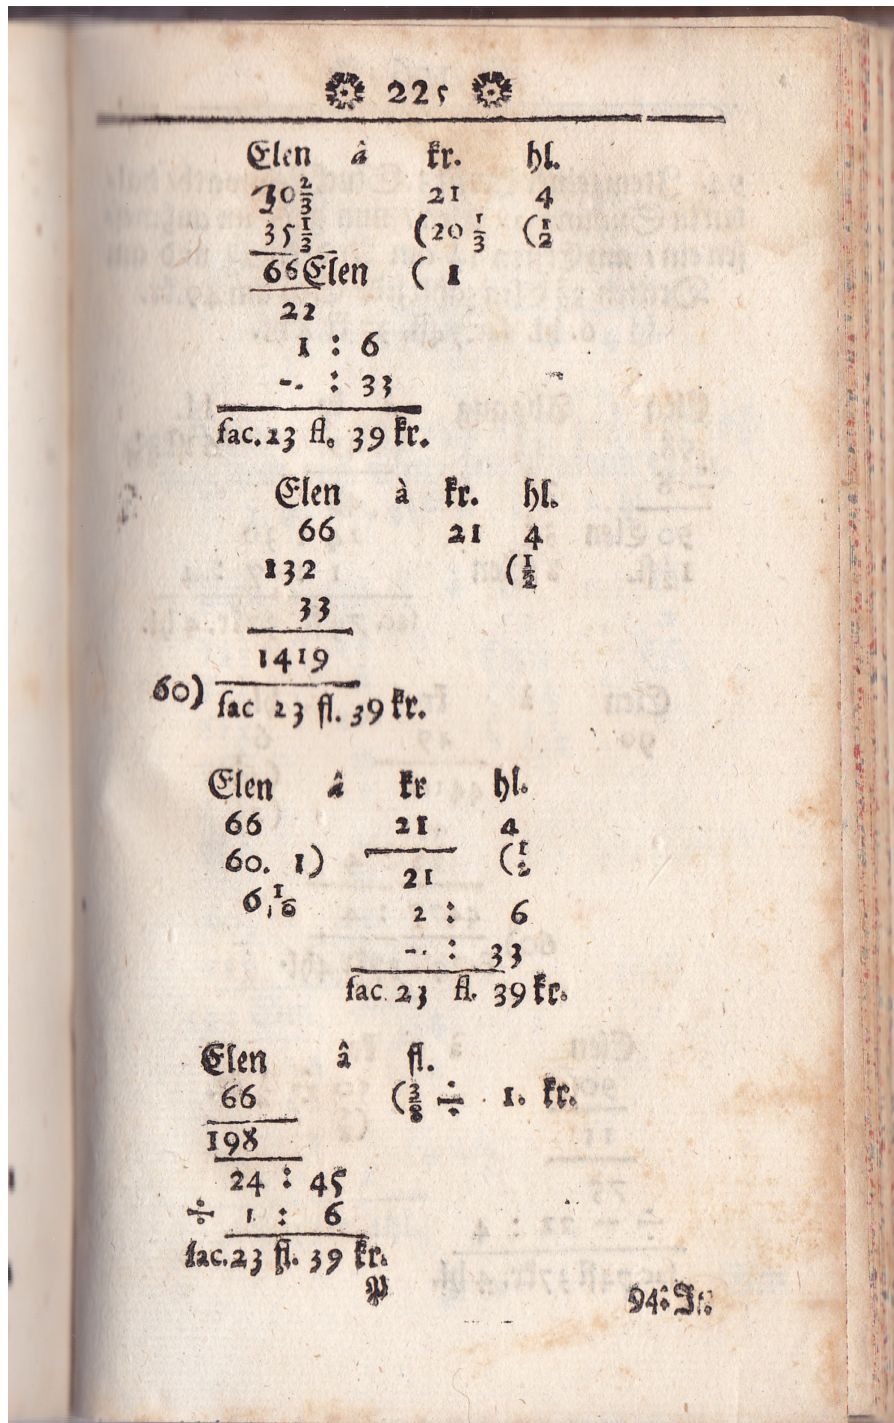 225
Elen â kr. hl.
30 2/3 21 4
35 1/3 (20 1/3 (1/2
66 Elen ( 1
22
1 : 6
-. : 33
fac. 23 fl. 39 kr.
Elen à kr. hl.
66 21 4
132 (1/2
33
1419
60) fac 23 fl. 39 kr.
Elen â kr hl.
66 21 4
60. 1) 21 (1/2
6 1/6 2 : 6
-. : 33
fac. 23 fl. 39 kr.
Elen â fl.
66 (3/8 ÷ 1. kr.
198
24 : 45
÷ 1 : 6
fac. 23 fl. 39 kr.
P 94: